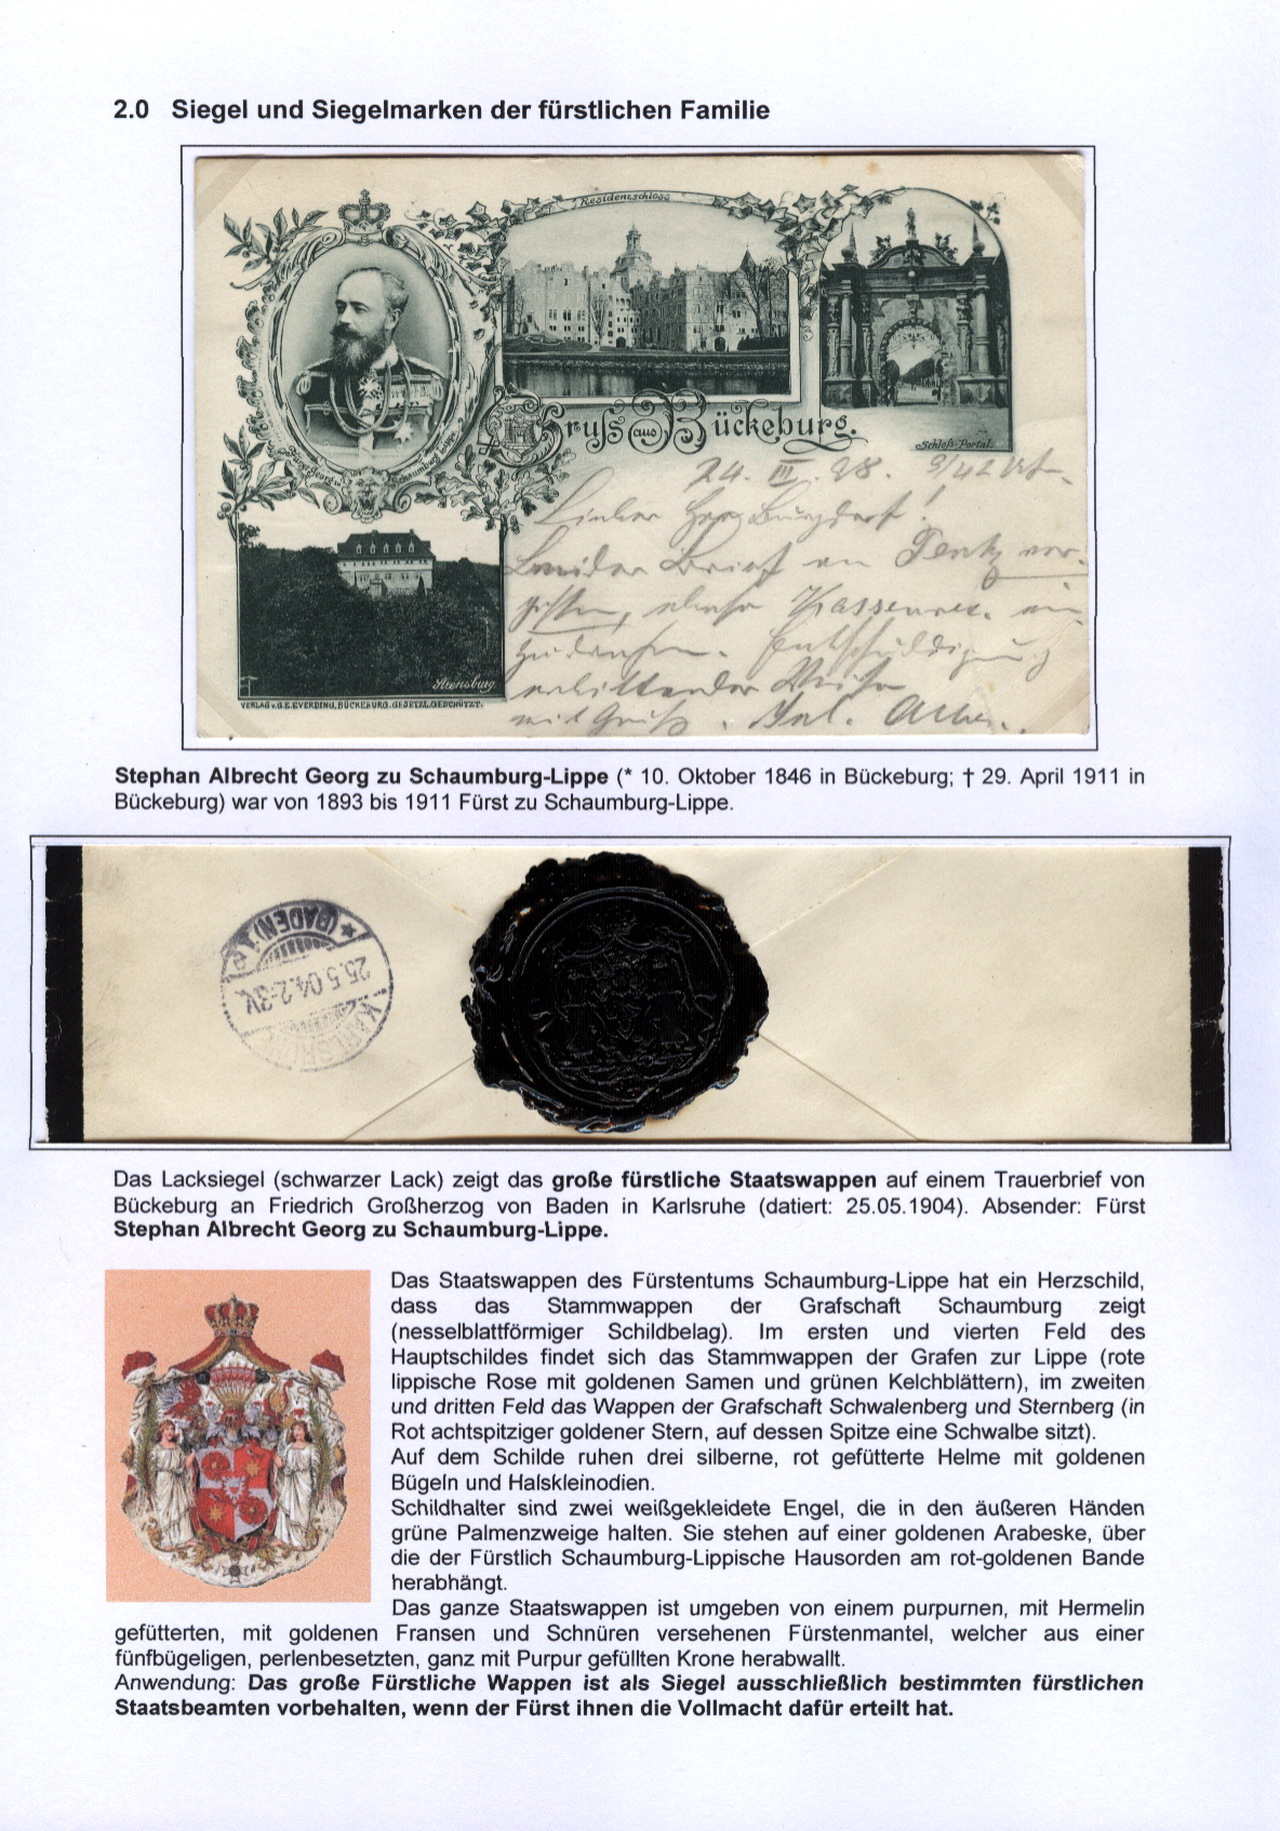 2.0 Siegel und Siegelmarken der fürstlichen Familie
Residenzschloss
Fürst Georg v. Schaumburg-Lippe
Gruss aus Bückeburg.
Schloß-Portal.
24. III. 98. 9/42
Lieber Herr Burgdorf!
Leider Brief an ver-
gessen, ebenso Kassenrev. ein
Entschuldigung
erbittender Weise
mit Gruß.
Arensburg
VERLAG v. G.E. EVERDING, BÜCKEBURG. GESETZL. GESCHÜTZT.
Stephan Albrecht Georg zu Schaumburg-Lippe (* 10. Oktober 1846 in Bückeburg; † 29. April 1911 in
Bückeburg) war von 1893 bis 1911 Fürst zu Schaumburg-Lippe.
(BADEN) 1
25.5.04.2-3V.
KARLSRUHE
Das Lacksiegel (schwarzer Lack) zeigt das große fürstliche Staatswappen auf einem Trauerbrief von
Bückeburg an Friedrich Großherzog von Baden in Karlsruhe (datiert: 25.05.1904). Absender: Fürst
Stephan Albrecht Georg zu Schaumburg-Lippe.
Das Staatswappen des Fürstentums Schaumburg-Lippe hat ein Herzschild,
dass das Stammwappen der Grafschaft Schaumburg zeigt
(nesselblattförmiger Schildbelag). Im ersten und vierten Feld des
Hauptschildes findet sich das Stammwappen der Grafen zur Lippe (rote
lippische Rose mit goldenen Samen und grünen Kelchblättern), im zweiten
und dritten Feld das Wappen der Grafschaft Schwalenberg und Sternberg (in
Rot achtspitziger goldener Stern, auf dessen Spitze eine Schwalbe sitzt).
Auf dem Schilde ruhen drei silberne, rot gefütterte Helme mit goldenen
Bügeln und Halskleinodien.
Schildhalter sind zwei weißgekleidete Engel, die in den äußeren Händen
grüne Palmenzweige halten. Sie stehen auf einer goldenen Arabeske, über
die der Fürstlich Schaumburg-Lippische Hausorden am rot-goldenen Bande
herabhängt.
Das ganze Staatswappen ist umgeben von einem purpurnen, mit Hermelin
gefütterten, mit goldenen Fransen und Schnüren versehenen Fürstenmantel, welcher aus einer
fünfbügeligen, perlenbesetzten, ganz mit Purpur gefüllten Krone herabwallt.
Anwendung: Das große Fürstliche Wappen ist als Siegel ausschließlich bestimmten fürstlichen
Staatsbeamten vorbehalten, wenn der Fürst ihnen die Vollmacht dafür erteilt hat.